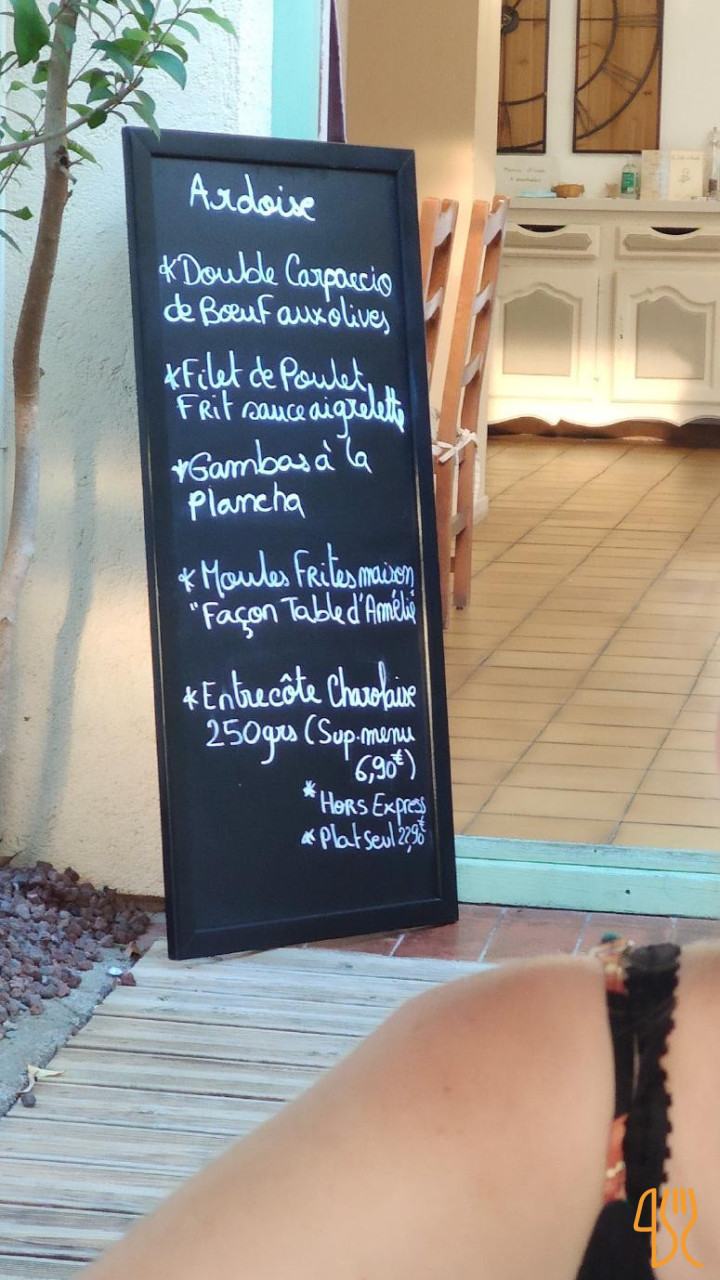 Ardoise
*Double Carpaccio
de Boeuf aux olives
*Filet de Poulet
Frit sauce aigrelette
*Gambas à la
Plancha
*Moules Frites maison
"Façon Table d'Amélie
*Entrecôte Charolaise
250grs (Sup.menu
6,90€)
*Hors Express
*Plat seul 22,90€